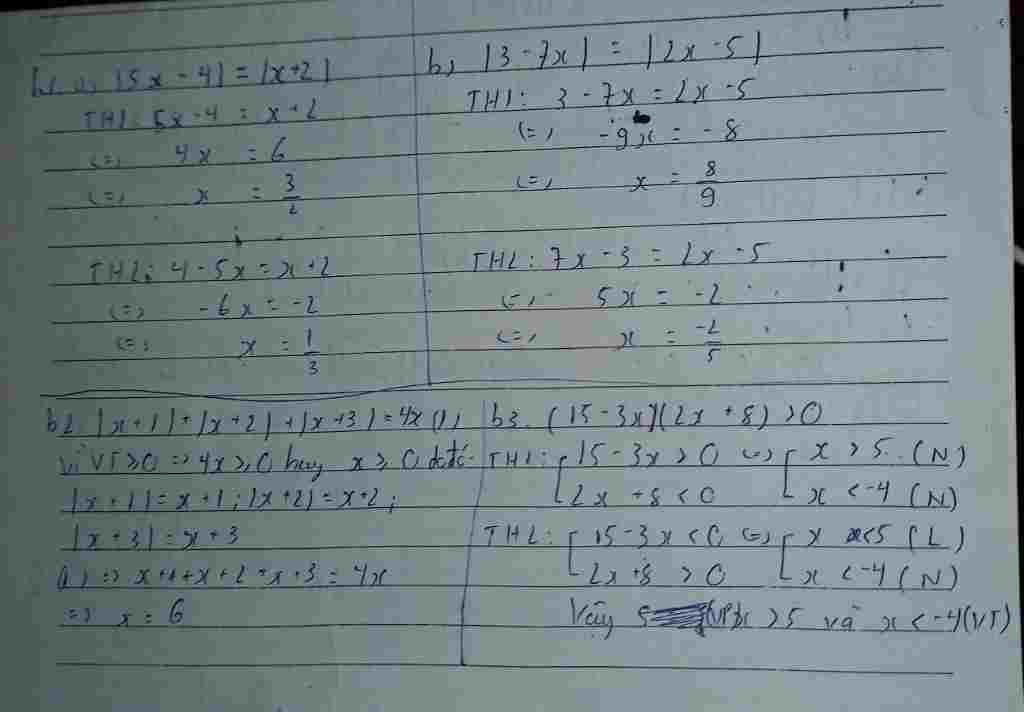 b1. a, |5x - 4| = |x+2|
TH1: 5x - 4 = x + 2
<=> 4x = 6
<=> x = 3/2
TH2: 4 - 5x = x + 2
<=> -6x = -2
<=> x = 1/3
b, |3 - 7x| = |2x - 5|
TH1: 3 - 7x = 2x - 5
<=> -9x = -8
<=> x = 8/9
TH2: 7x - 3 = 2x - 5
<=> 5x = -2
<=> x = -2/5
b2. |x + 1| + |x + 2| + |x + 3| = 4x (1)
Vì VT ≥ 0 => 4x ≥ 0 hay x ≥ 0 do đó
|x + 1| = x + 1; |x + 2| = x + 2;
|x + 3| = x + 3
(1) => x + 1 + x + 2 + x + 3 = 4x
=> x = 6
b3. (15 - 3x)(2x + 8) > 0
TH1: [15 - 3x > 0 <=> [x > 5 (N)
[2x + 8 < 0 [x < -4 (N)
TH2: [15 - 3x < 0 <=> [x < 5 (L)
[2x + 8 > 0 [x < -4 (N)
Vậy x > 5 và x < -4 (VT)